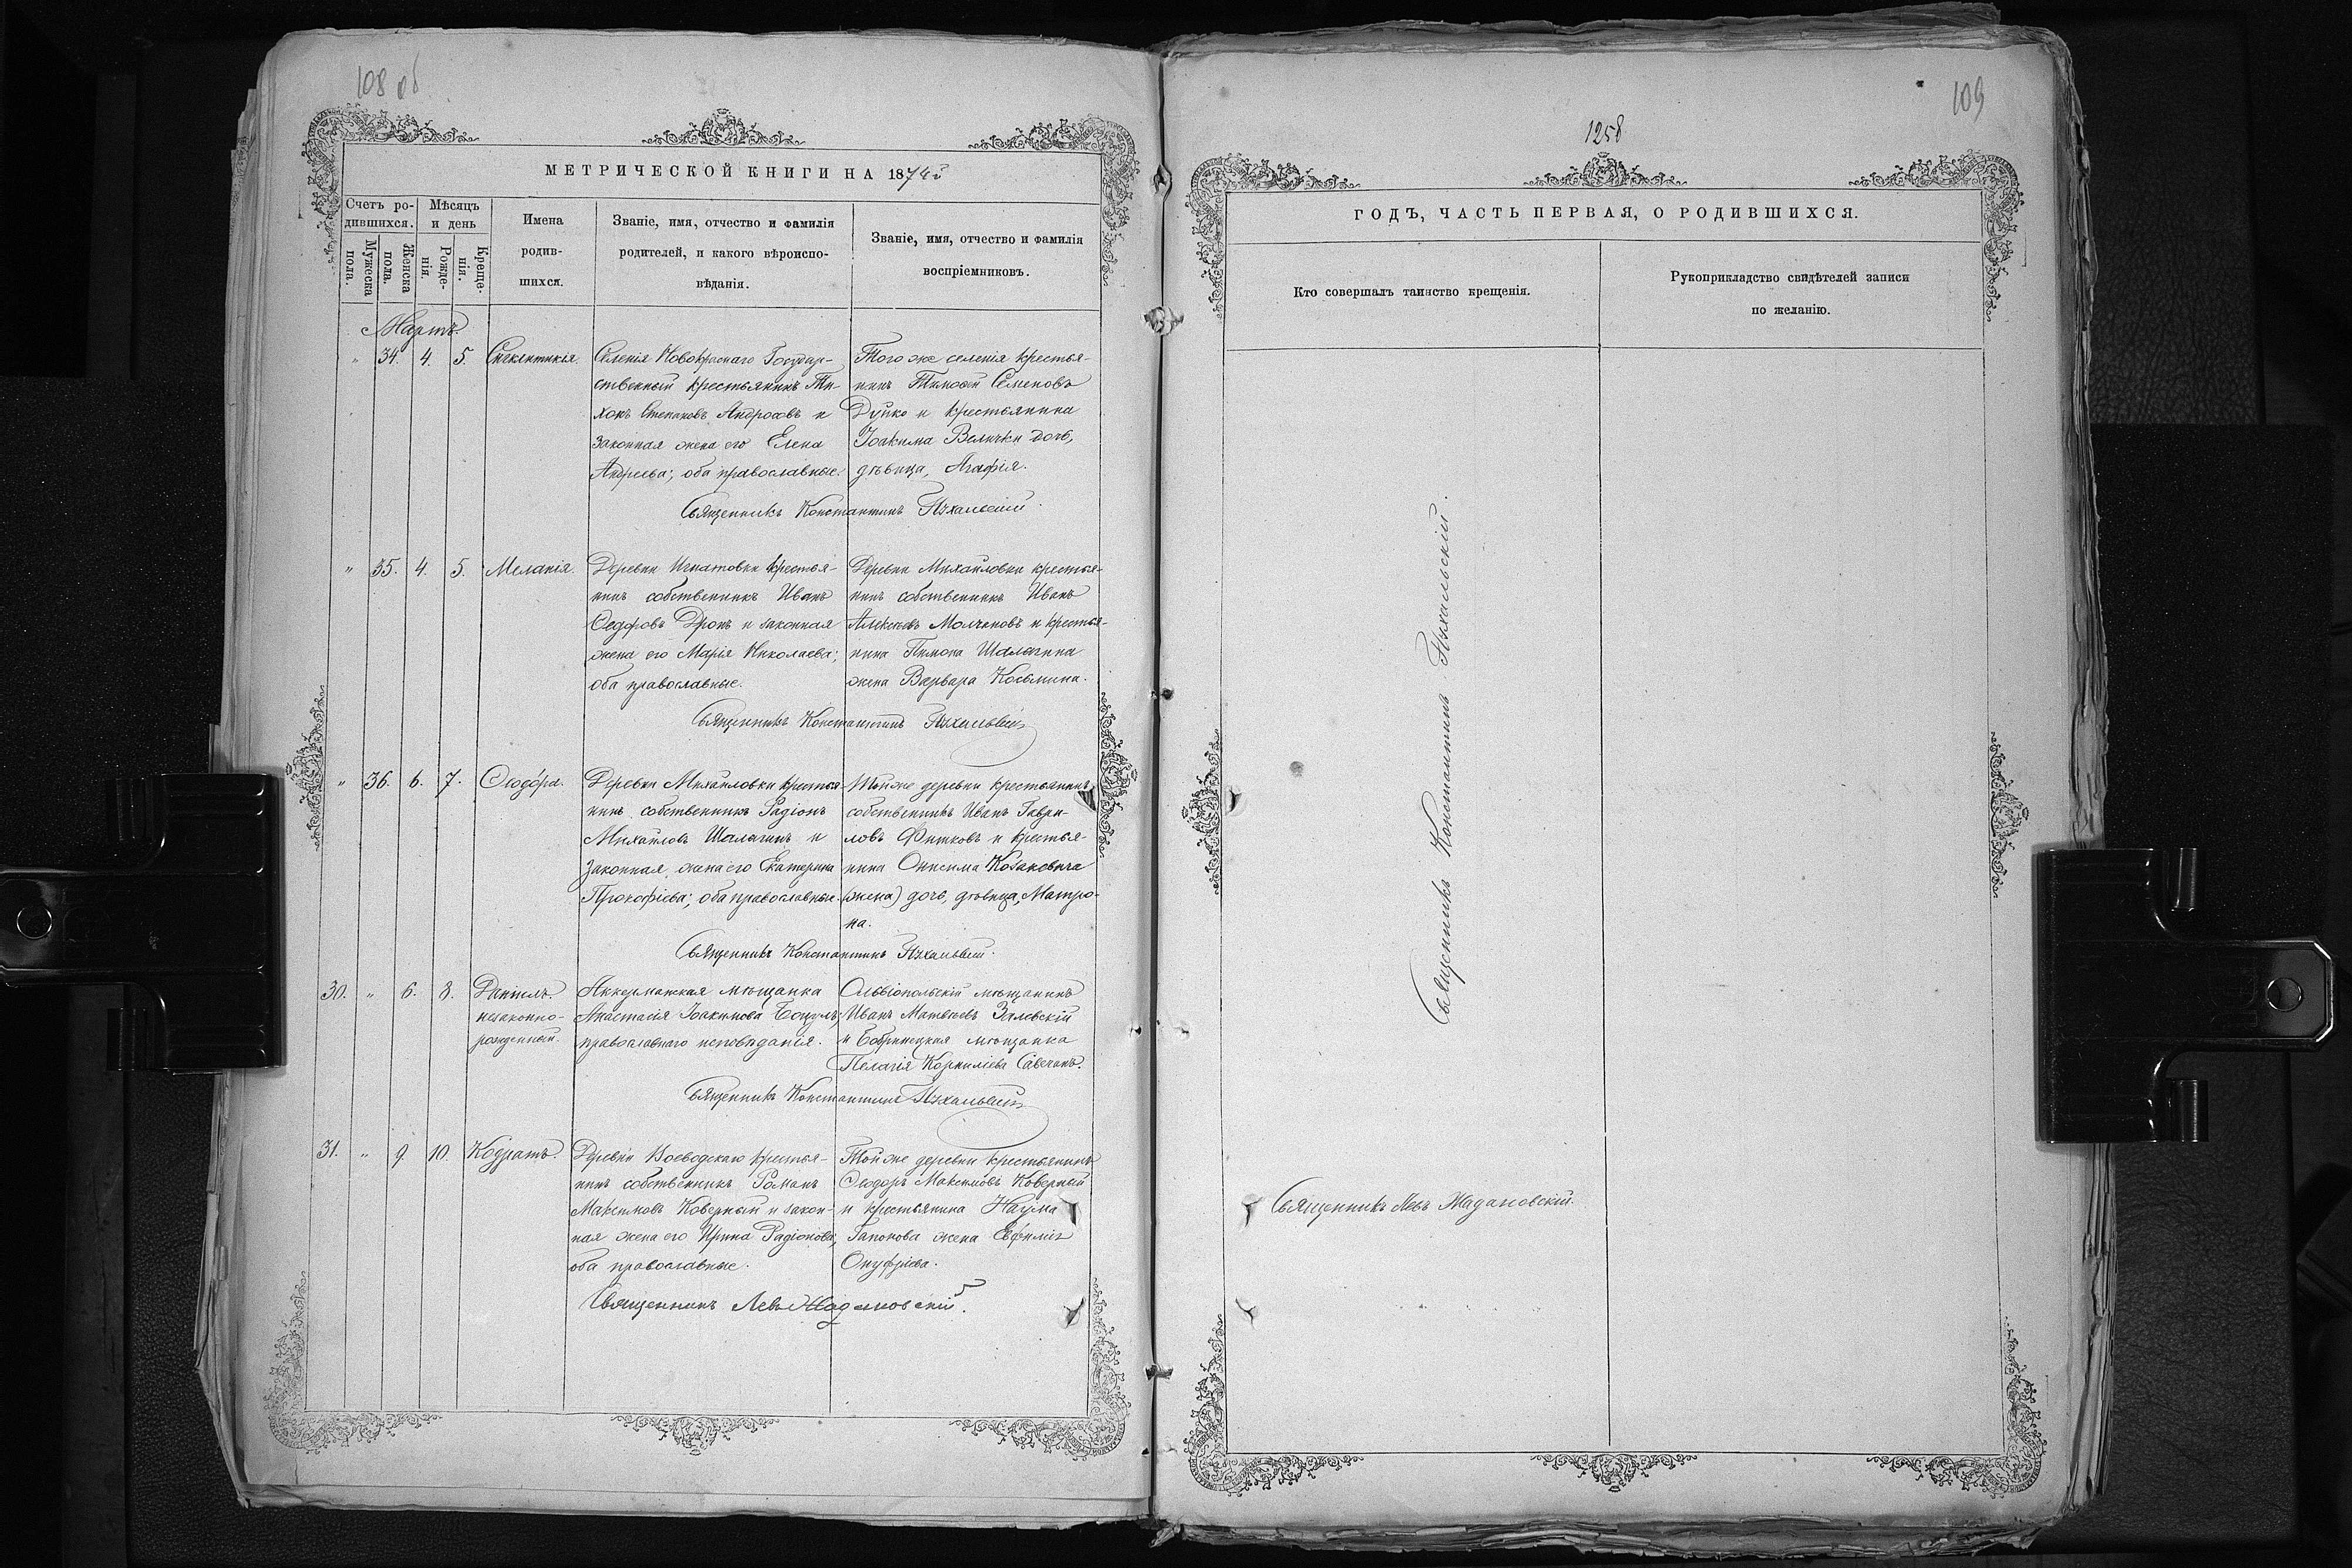 108 об
МЕТРИЧЕСКОЙ КНИГИ НА 1874й
Счетъ ро-
дившихся.
Мѣсяцъ
и день
Имена
родив-
шихся.
Званіе, имя, отчество и фамилія
родителей, и какого вѣроиспо-
вѣданія.
Званіе, имя, отчество и фамилія
воспріемниковъ.
Мужеска
пола.
Женска
пола.
Рожде-
нія.
Креще-
нія.
Мартъ.
" 34. 4. 5. Синклитикія.
Селенія Новокраснаго Государ-
ственный крестьянинъ Ти-
хонъ Степановъ Андросовъ и
законная жена его Елена
Андреева; оба православные.
Того же селенія крестья-
нинъ Тимофей Семеновъ
Дупко и крестьянина
Іоакима Велички дочь,
дѣвица, Агафія.
Священникъ Константинъ Пухальскій.
" 35. 4. 5. Меланія.
Деревни Игнатовки крестья-
нинъ собственникъ Иванъ
Ѳедоровъ Дронъ и законная
жена его Марія Николаева;
оба православные.
Деревни Михайловки крестья-
нинъ собственникъ Иванъ
Алексѣевъ Молчановъ и крестья-
нина Пимона Шалыгина
жена Варвара Косьмина.
Священникъ Константинъ Пухальскій
" 36. 6. 7. Ѳеодо́ра.
Деревни Михайловки крестья-
нинъ собственникъ Радіонъ
Михайловъ Шалыгинъ и
законная жена его Екатерина
Прокофіева; оба православные.
Той же деревни крестьянинъ
собственникъ Иванъ Гаври-
ловъ Фитковъ и крестья-
нина Онисима Козакевича
(жена) дочь, дѣвица, Матро-
на.
Священникъ Константинъ Пухальскій.
30. " 6. 8. Даніилъ.
незаконно-
рожденный.
Аккерманская мѣщанка
Анастасія Іоакимова
православнаго исповѣданія.
Ольвіопольскій мѣщанинъ
Иванъ Матвѣевъ Залевскій
и Бобринецкая мѣщанка
Пелагія Корниліева Савчакъ.
Священникъ Константинъ Пухальскій
31. " 9. 10. Кодратъ.
Деревни Воеводскаго крестья-
нинъ собственникъ Романъ
Максимовъ Коверный и закон-
ная жена его Ирина Радіонова;
оба православные.
Той же деревни крестьянинъ
Ѳеодоръ Максимовъ Коверный
и крестьянина Наума
Гапонова жена Евфимія
Онуфріева.
Священникъ Левъ Жадановскій.
109
1258
ГОДЪ, ЧАСТЬ ПЕРВАЯ, О РОДИВШИХСЯ.
Кто совершалъ таинство крещенія.
Рукоприкладство свидѣтелей записи
по желанію.
Священникъ Константинъ Пухальскій.
Священникъ Левъ Жадановскій.